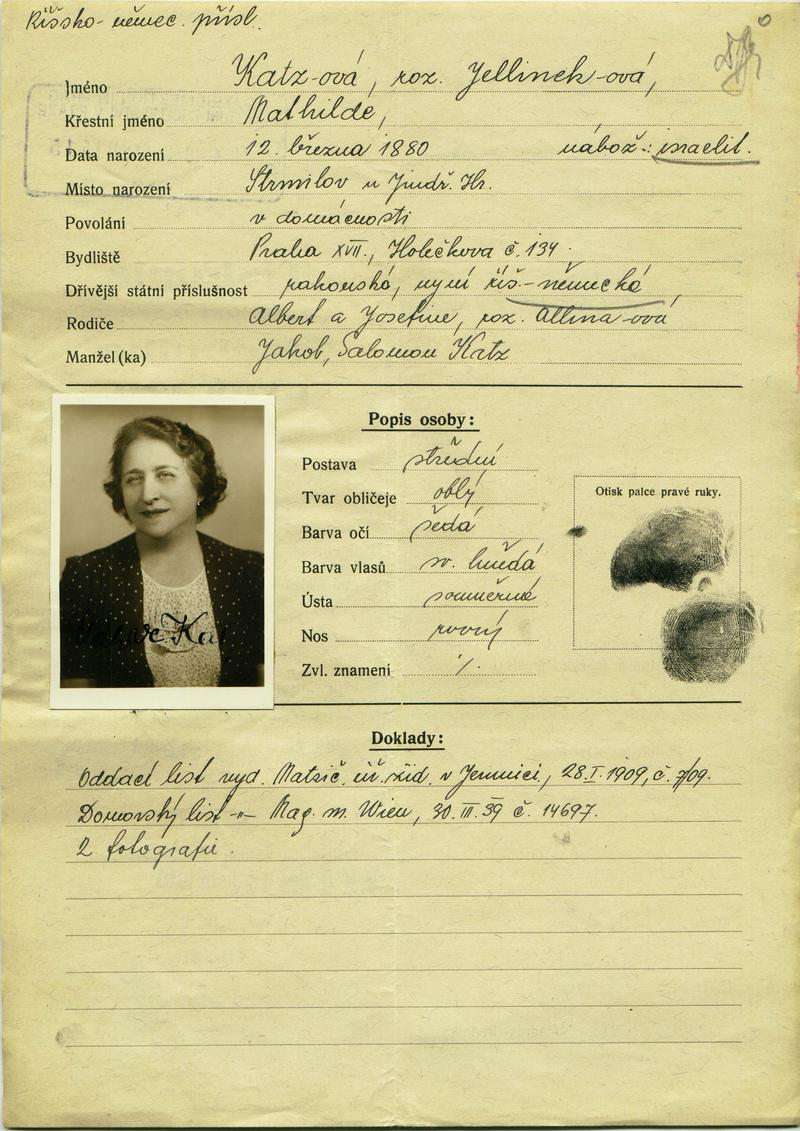 Říšsko-němec. přísl.
Jméno Katz-ová, roz. Jellinek-ová,
Křestní jméno Mathilde,
Data narození 12. března 1880 nábož.: israelit.
Místo narození Strmilov u Jindř. Hr.
Povolání v domácnosti
Bydliště Praha XVII., Holečkova č. 134.
Dřívější státní příslušnost rakouská, nyní říš.-německá
Rodiče Albert a Josefine, roz. Allina-ová
Manžel(ka) Jakob, Salomon Katz
Popis osoby:
Postava střední
Tvar obličeje oblý
Barva očí šedá
Barva vlasů sv. hnědá
Ústa souměrná
Nos rovný
Zvl. znamení %.
Otisk palce pravé ruky.
Doklady:
Oddací list vyd. Matrič. úř. žid. v Jemnici, 28.I.1909, č. 7/09.
Domovský list -"- Mag. m. Wien, 30.III.39 č. 14697.
2 fotografie.